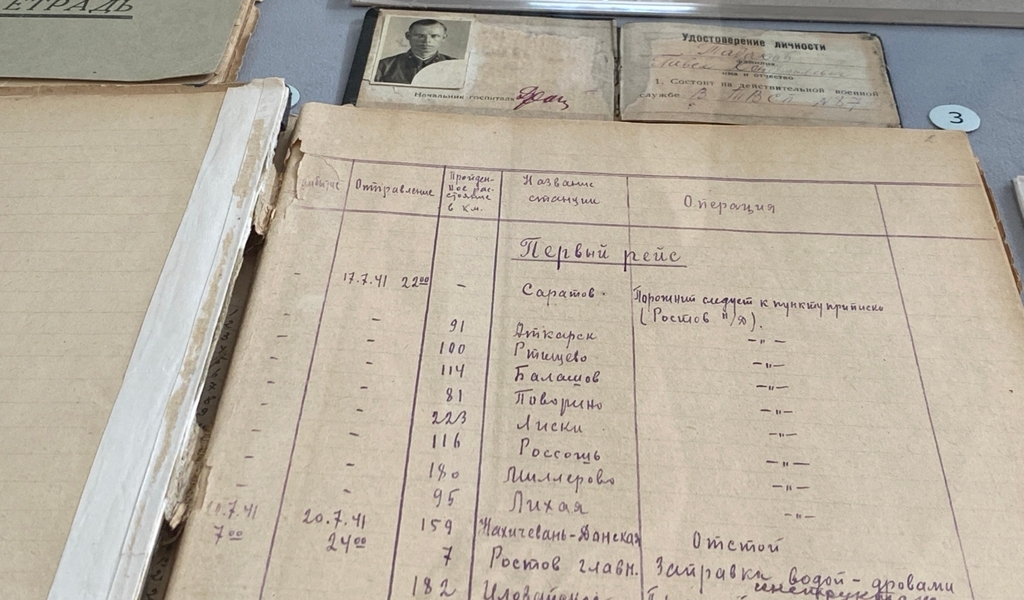 ЕТРАДЬ
Удостоверение личности
фамилия
имя и отчество
1. Состоит на действительной военной
службе В ТВСП №27
Начальник госпиталя
3
Отправление
Пройден-
ное рас-
стояние
в км.
Название
станции
Операция
Первый рейс
- 17.7.41 22⁰⁰ - Саратов. Порожний следует к пункту приписки
(Ростов н/Д).
- - 91 Аткарск -"-
- - 100 Ртищево -"-
- - 114 Балашов -"-
- - 81 Поворино -"-
- - 223 Лиски -"-
- - 116 Россошь -"-
- - 180 Миллерово -"-
- - 95 Лихая -"-
7⁰⁰ 20.7.41 24⁰⁰ 159 Нахичевань-Донская Отстой
7 Ростов главн. Заправка водой-дровами
182